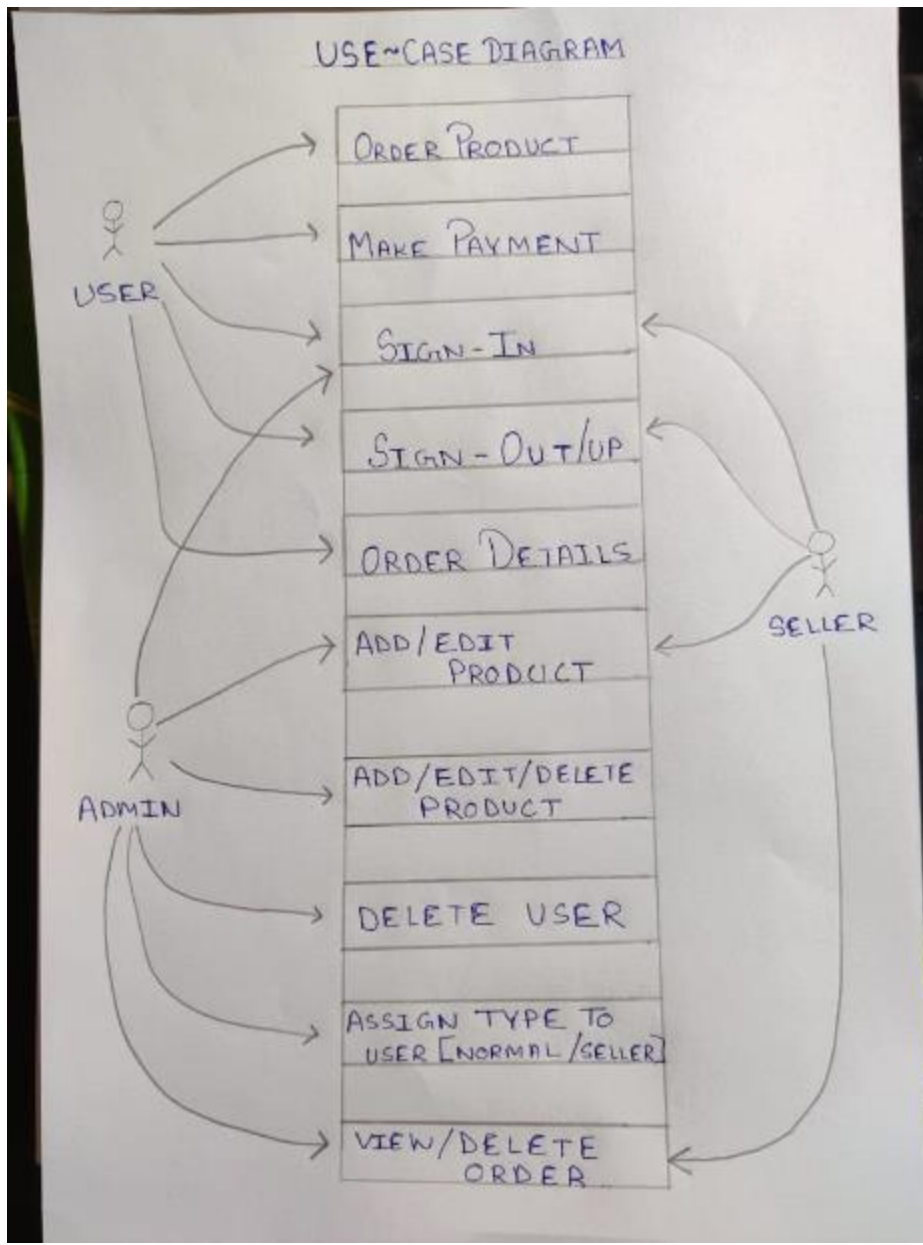 USE~CASE DIAGRAM
ORDER PRODUCT
MAKE PAYMENT
USER
SIGN-IN
SIGN-OUT/UP
ORDER DETAILS
SELLER
ADD/EDIT
PRODUCT
ADD/EDIT/DELETE
PRODUCT
ADMIN
DELETE USER
ASSIGN TYPE TO
USER [NORMAL/SELLER]
VIEW/DELETE
ORDER